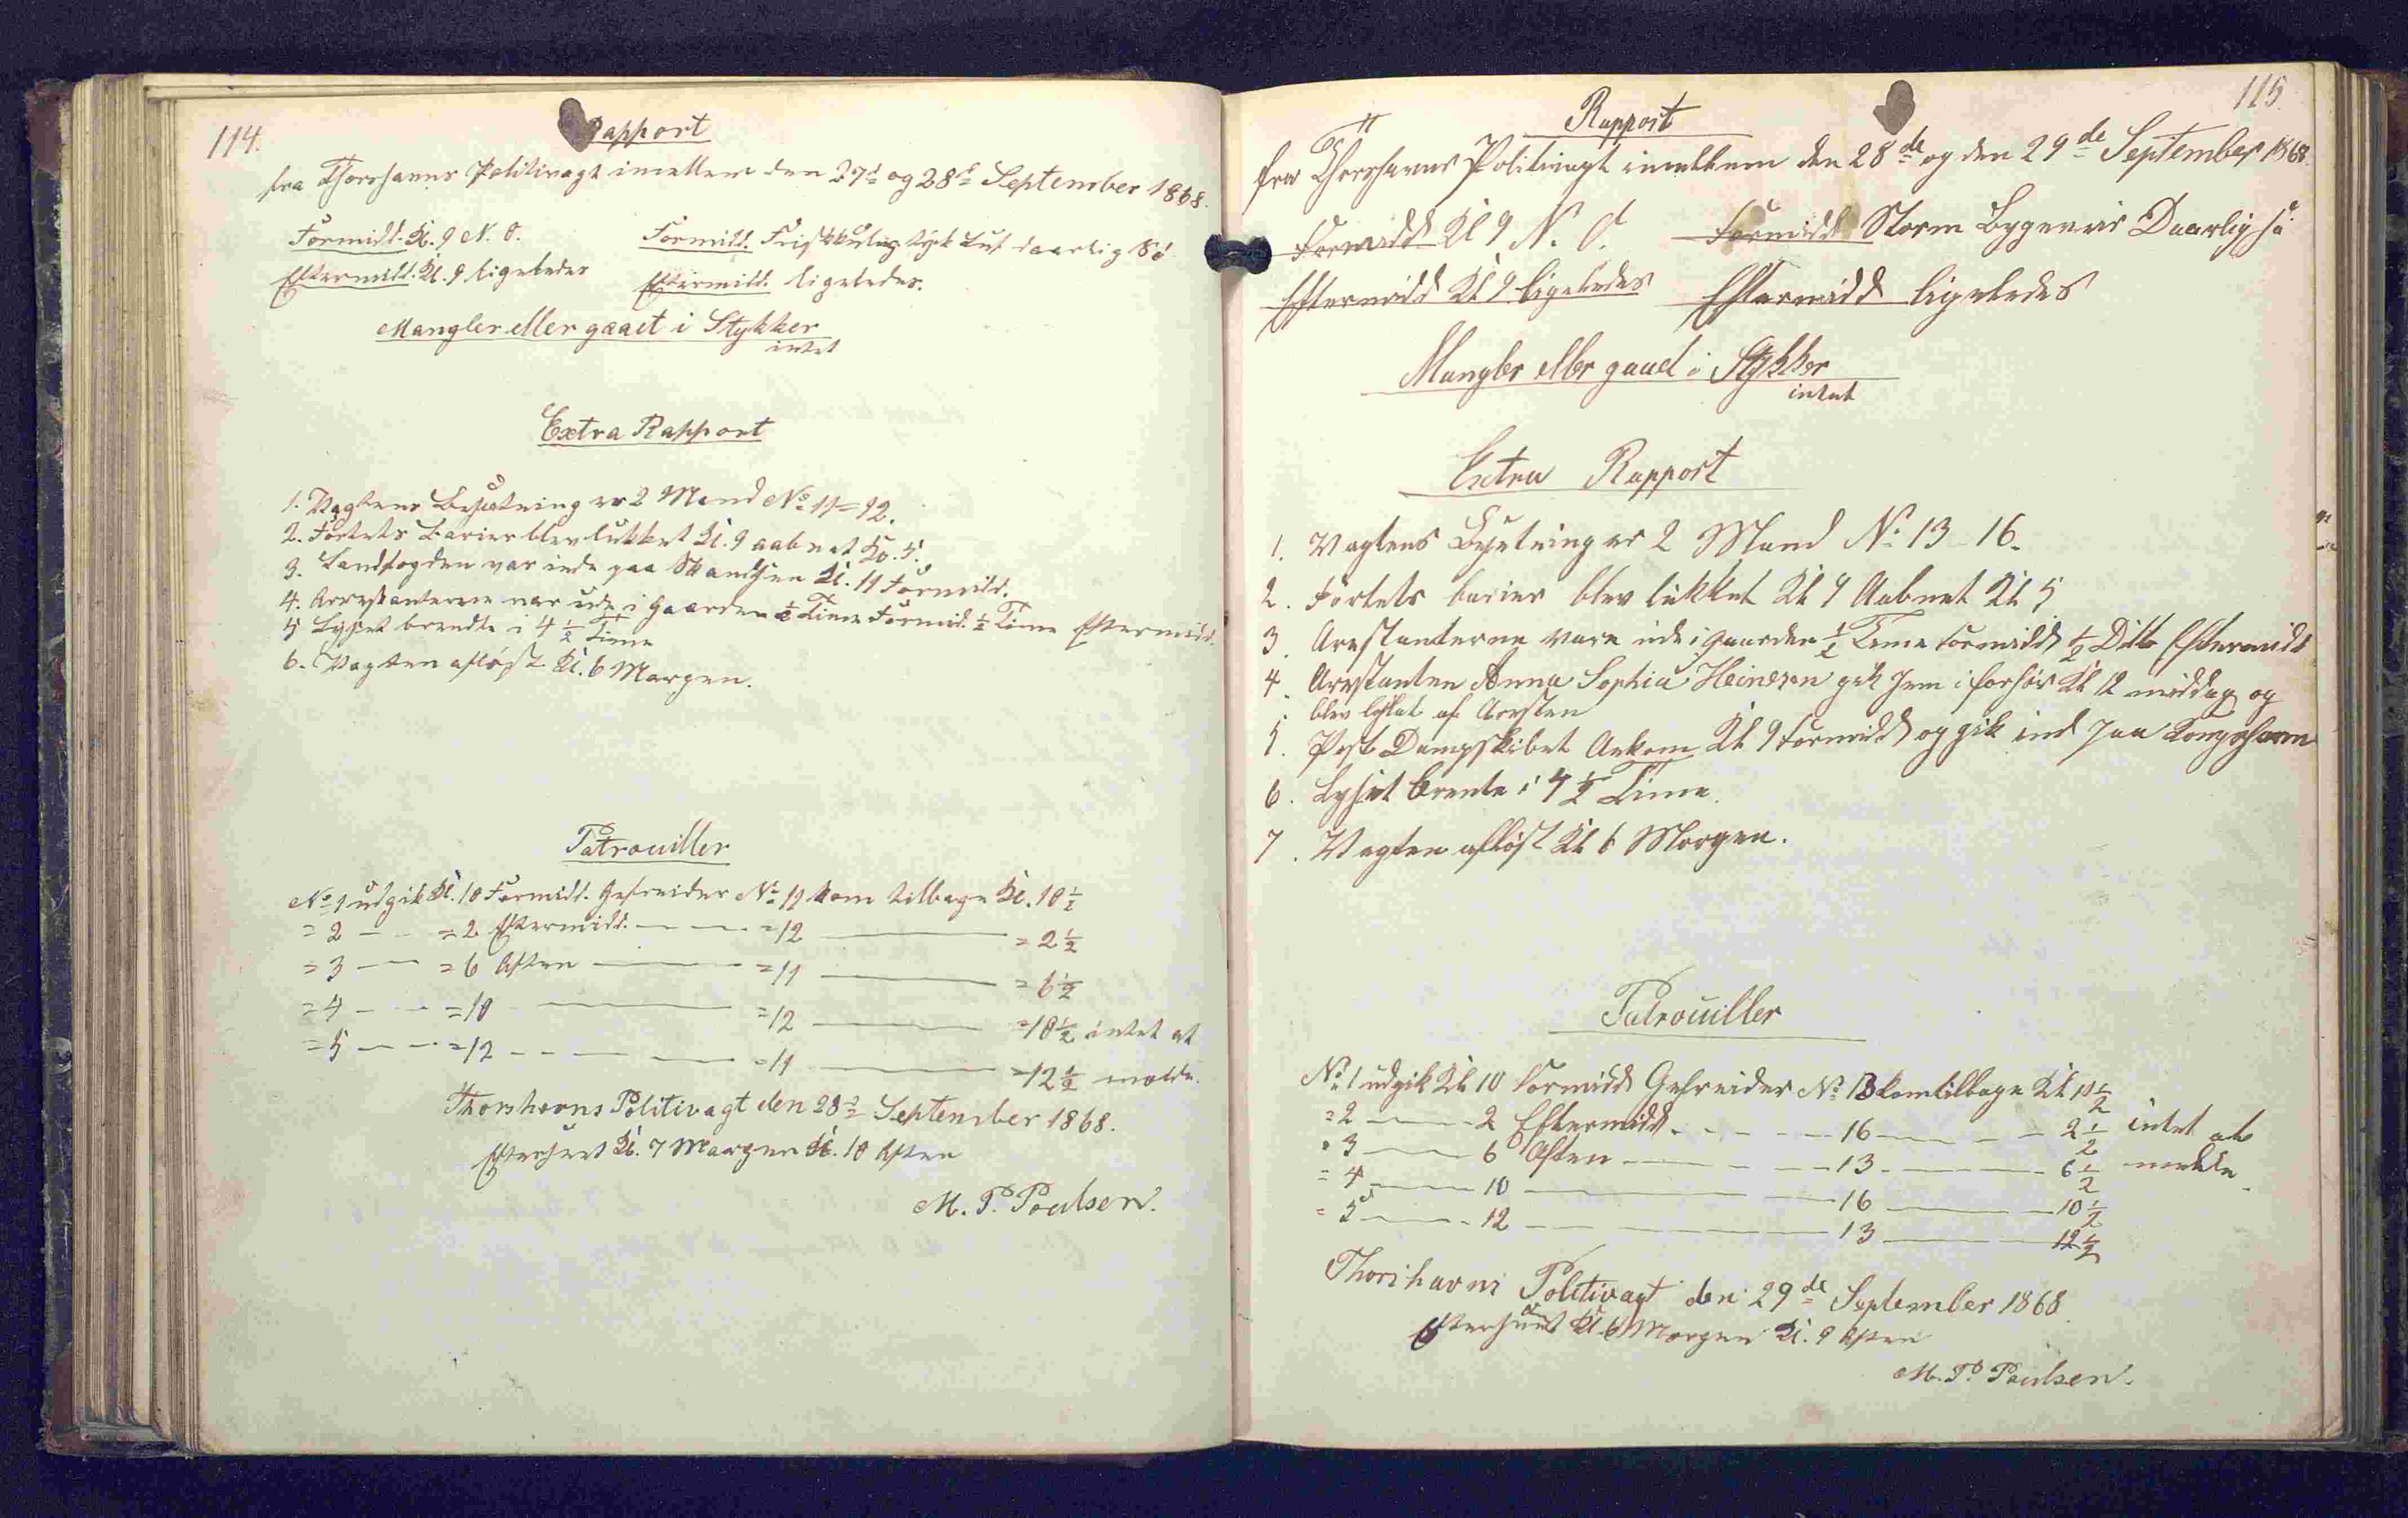 114.
Rapport
fra Thorshavns Politivagt imellem den 27d og 28d September 1868.
Formidd. Kl. 9 N. O. Formidd. Friskkuling tyk Luft daarlig Sö
Eftermidd. Kl. 9 ligeledes Eftermidd. ligeledes.
Mangler eller gaaet i Stykker
intet
Extra Rapport
1. Vagtens Besætning er 2 Mand No 11=12.
2. Fortets Barier blev lukket Kl. 9 aabnet Ko. 5.
3. Landfogden var inde paa Skandsen Kl. 11 Formidd.
4. Arrestanterne var ude i Gaarden ½ Time Formid. ½ Time Eftermidd.
5 Lyset brendte i 4 ½ Time
6. Vagten aflöst Kl. 6 Morgen.
Patrouiller
No 1 udgik Kl. 10 Formidd. Gefreider No 11 kom tilbage Kl. 10 ½
= 2 — - = 2 Eftermidd. — — - = 12 — = 2 ½
= 3 — = 6 Aften — = 11 — = 6 ½
= 4 — - = 10 — = 12 — = 10 ½ intet at
= 5 — - = 12 - - — = 11 — = 12 ½ melde.
Thorshavns Politivagt den 28d September 1868.
Efterseet Kl. 7 Morgen Kl. 10 Aften
M. P. Poulsen.
115
Rapport
fra Thorshavns Politivagt imellem den 28de og den 29de September 1868.
Formidd Kl 9 N. O. Formidd Storm Bygeveir Daarlig sö
Eftermidd Kl 9 ligeledes Eftermidd ligeledes
Mangler eller gaaed i Stykker
intet
Extra Rapport
1. Vagtens Besetning er 2 Mand No 13 - 16.
2. Fortets barier blev lukket Kl 9 Aabnet Kl 5
3. Arestanterne vare ude i gaarden ½ Time formidd ½ Ditto Eftermidd
4. Arestanten Anna Sophia Heinesen gik hem i forhör Kl 12 middag og
blev löslat af Aresten
5. Post Dampskibet Ankom Kl 9 Formidd og gik ind paa Kongshavn
6. Lyset brente i 4 ½ Time.
7. Vagten aflöst Kl 6 Morgen.
Patrouiller
No 1 udgik Kl 10 Formidd Gefreider No 13 kom tilbage Kl 10 ½
= 2 — - 2 Eftermidd. - - - — 16 — - — 2 ½ intet at
= 3 — 6 Aften — - — 13 - — 6 ½ melde.
= 4 — 10 — 16 — 10 ½
= 5 — - 12 — 13 — 12 ½
Thorshavns Politivagt den 29de September 1868
Efterseet Kl 6 Morgen Kl. 9 Aften
M. P. Poulsen.